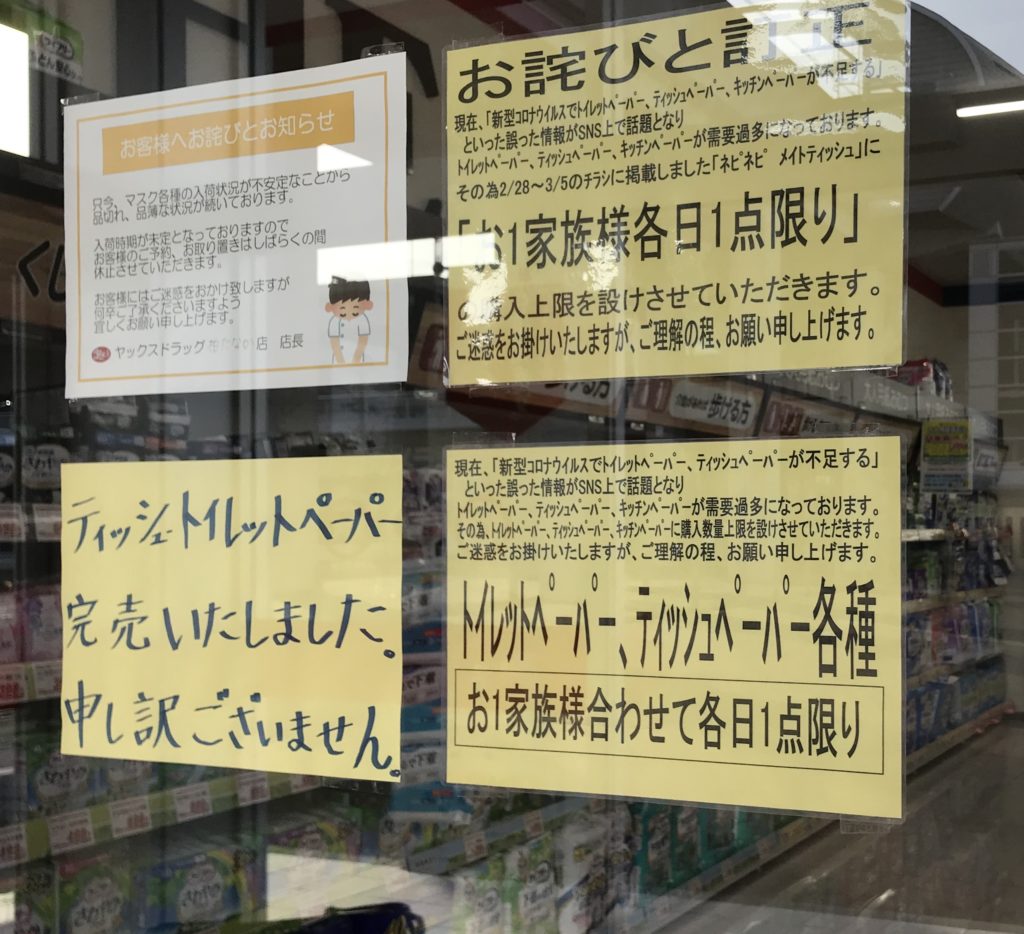 お客様へお詫びとお知らせ
只今、マスク各種の入荷状況が不安定なことから
品切れ、品薄な状況が続いております。
入荷時期が未定となっておりますので
お客様のご予約、お取り置きはしばらくの間
休止させていただきます。
お客様にはご迷惑をおかけ致しますが
何卒ご了承くださいますよう
宜しくお願い申し上げます。
ヤックスドラッグ 店 店長
お詫びと訂正
現在、「新型コロナウイルスでトイレットペーパー、ティッシュペーパー、キッチンペーパーが不足する」
といった誤った情報がSNS上で話題となり
トイレットペーパー、ティッシュペーパー、キッチンペーパーが需要過多になっております。
その為2/28～3/5のチラシに掲載しました「ネピネピ メイトティッシュ」に
「お1家族様各日1点限り」
の購入上限を設けさせていただきます。
ご迷惑をお掛けいたしますが、ご理解の程、お願い申し上げます。
ティッシュ・トイレットペーパー
完売いたしました。
申し訳ございません。
現在、「新型コロナウイルスでトイレットペーパー、ティッシュペーパーが不足する」
といった誤った情報がSNS上で話題となり
トイレットペーパー、ティッシュペーパー、キッチンペーパーが需要過多になっております。
その為、トイレットペーパー、ティッシュペーパー、キッチンペーパーに購入数量上限を設けさせていただきます。
ご迷惑をお掛けいたしますが、ご理解の程、お願い申し上げます。
トイレットペーパー、ティッシュペーパー各種
お1家族様合わせて各日1点限り
歩ける方